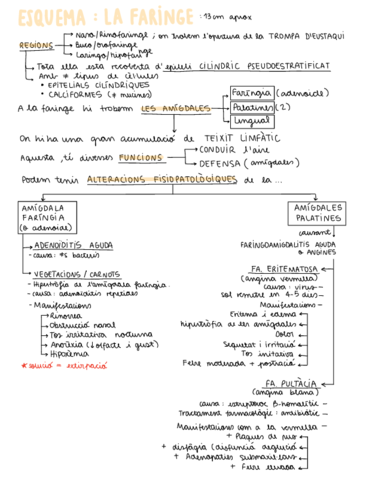 ESQUEMA : LA FARINGE : 13cm aprox
REGIONS
Naro/Rinofaringe ; on trobem l'apertura de la TROMPA D'EUSTAQUI
Buco/orofaringe
Laringo/hipofaringe
Tota ella esta recoberta d'epiteli CILÍNDRIC PSEUDOESTRATIFICAT
Amb ≠ tipus de cèl·lules
• EPITELIALS CILÍNDRIQUES
• CALCIFORMES (↑ mucines)
A la faringe hi trobem LES AMÍGDALES
Faríngia (adenoide)
Palatines (2)
Lingual
On hi ha una gran acumulació de TEIXIT LIMFÀTIC
Aquesta, té diverses FUNCIONS
CONDUIR l'aire
DEFENSA (amígdales)
Podem tenir ALTERACIONS FISIOPATOLÒGIQUES de la ...
AMÍGDALA FARÍNGIA
(o adenoide)
ADENOÏDITIS AGUDA
- causa: bacteris
VEGETACIONS / CARNOTS
- Hipertròfia de l'amígdala faríngia
- causa: adenoiditis repetides
- Manifestacions
Rinorea
Obstrucció nasal
Tos irritativa nocturna
Anorèxia (↓ olfacte i gust)
Hipoxèmia
* solució = extirpació
AMÍGDALES PALATINES
causant
FARINGOAMIGDALITIS AGUDA
o ANGINES
FA. ERITEMATOSA
(angina vermella)
causa : virus -
sol remetre en 4-5 dies -
Manifestacions -
Eritema i edema
hipertròfia de les amígdales
Dolor
Sequetat i irritació
Tos irritativa
Febre moderada + postració
FA. PULTÀCIA
(angina blanca)
causa : estreptococ β-hemolític -
Tractament farmacològic : antibiòtic -
Manifestacions com a la vermella -
+ Plaques de pus
+ disfàgia (disfunció deglució)
+ Adenopaties submaxil·lars
+ Febre elevada